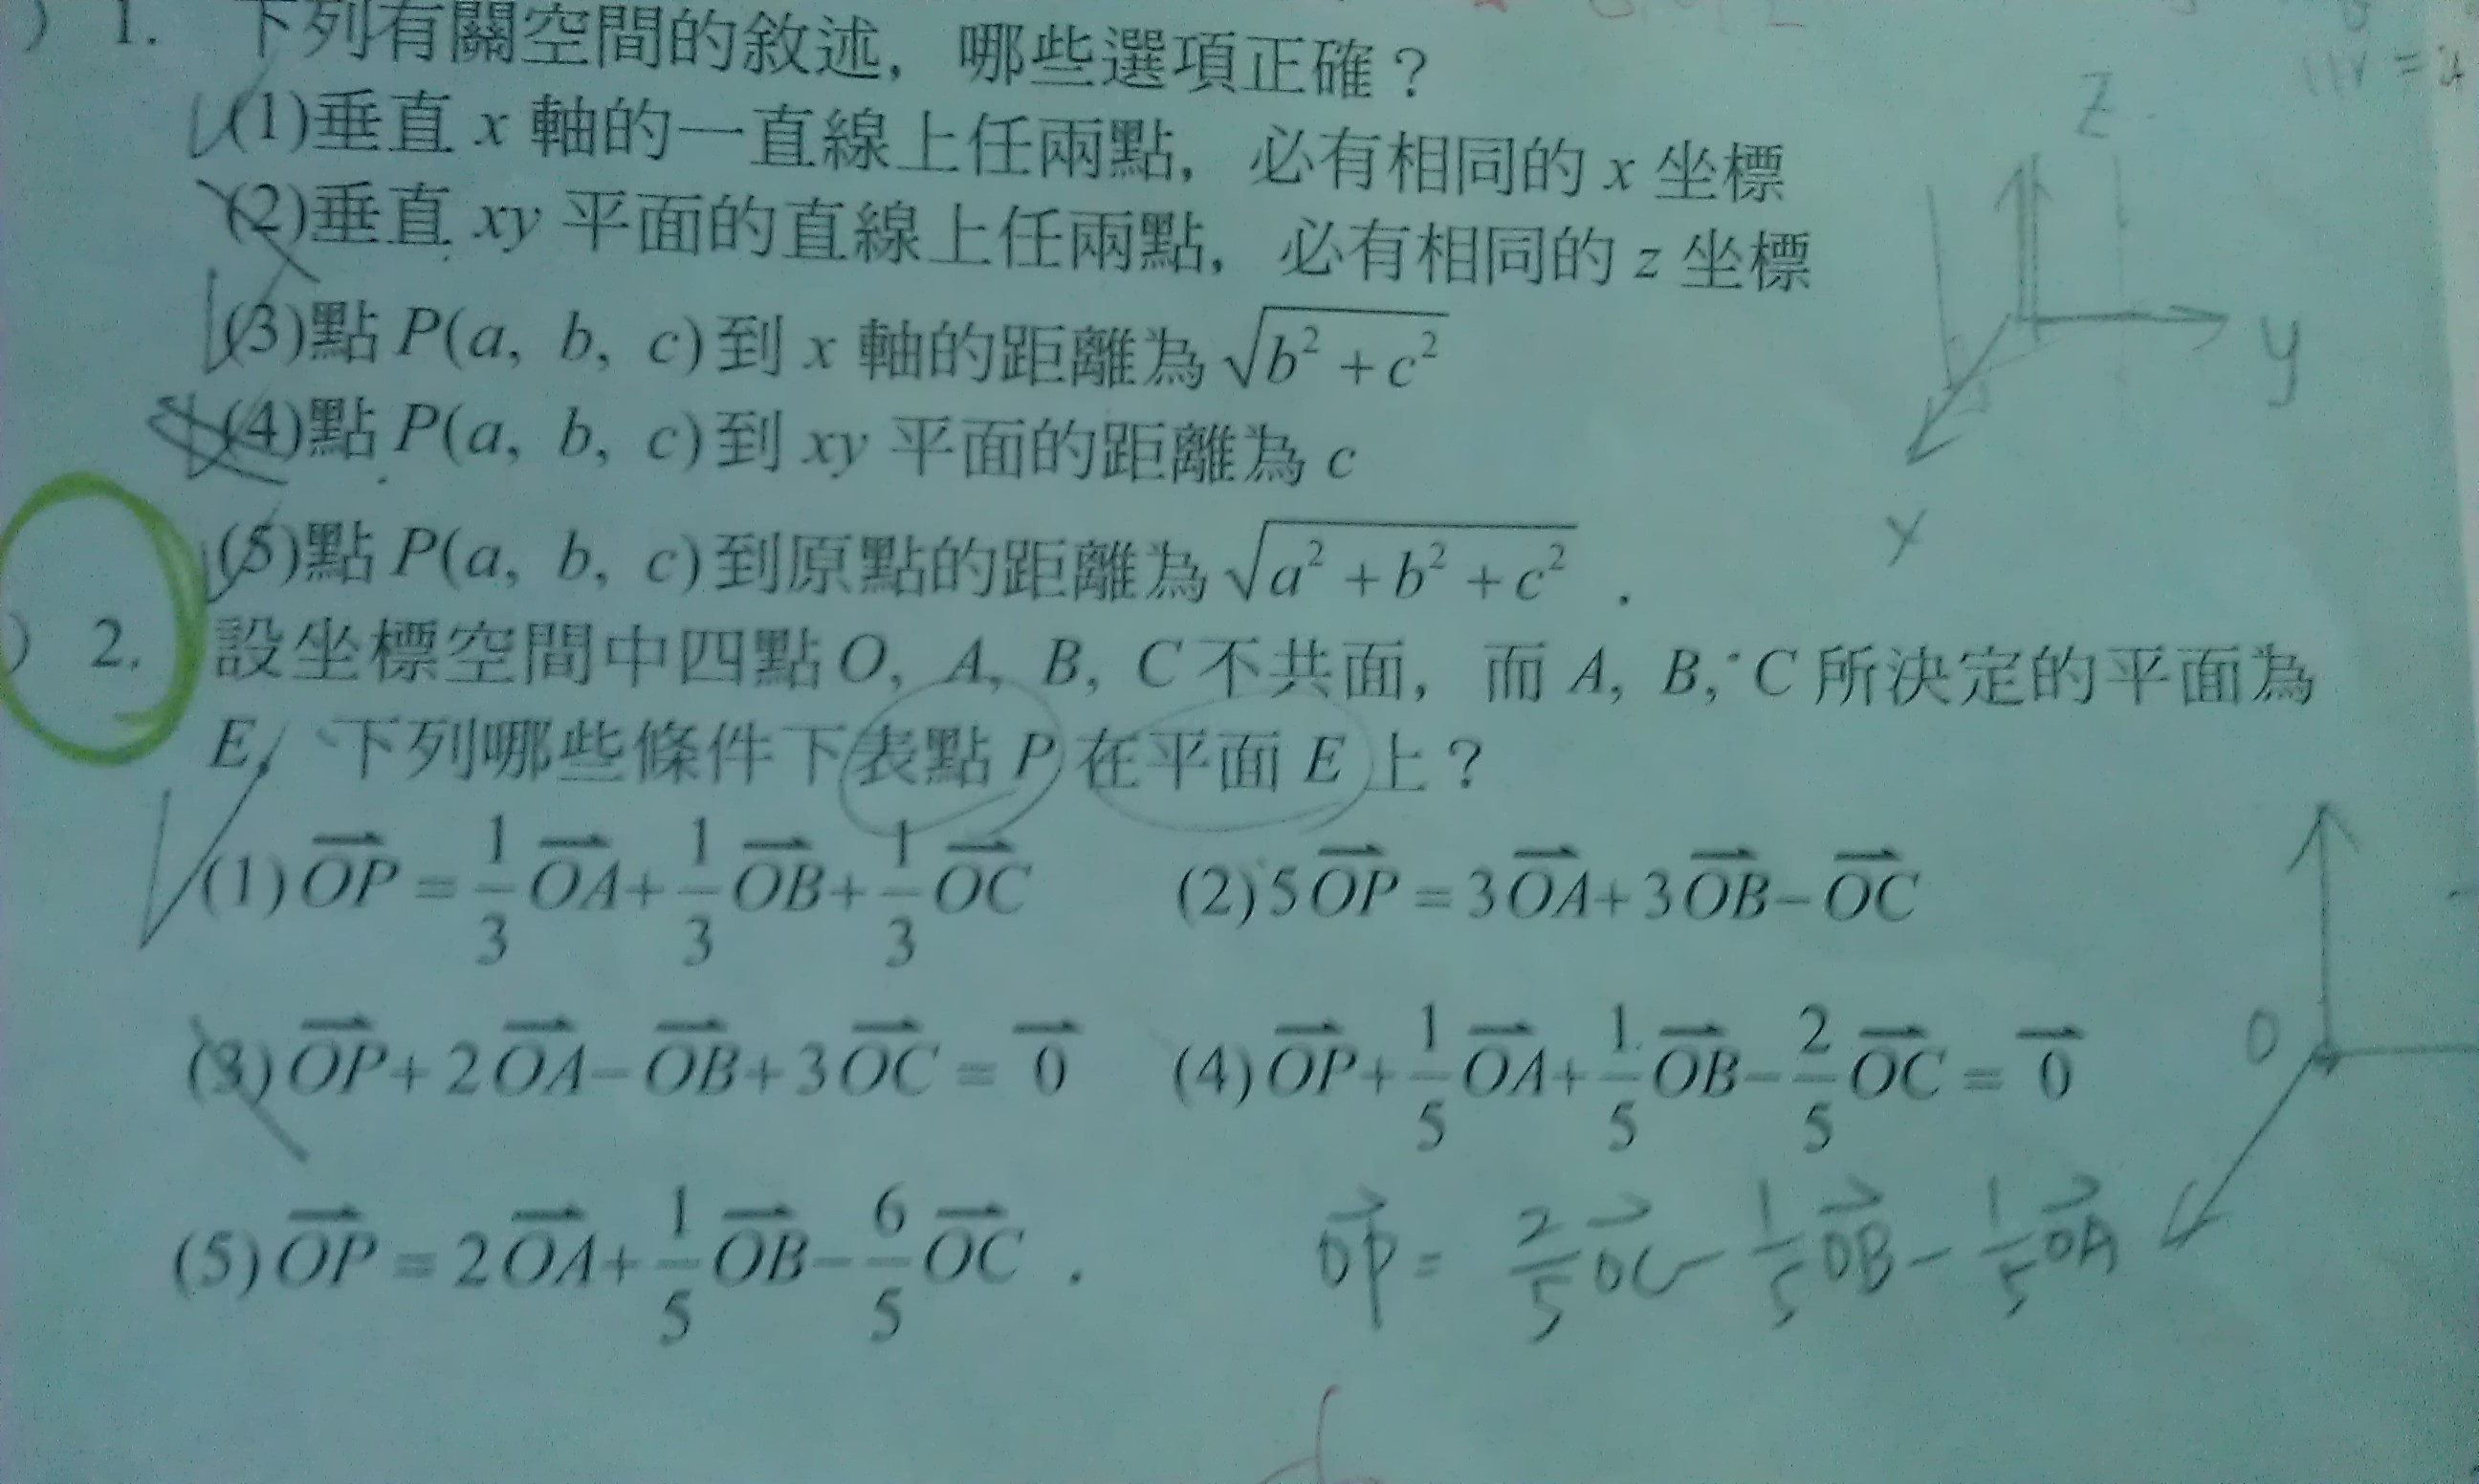 ) 1. 下列有關空間的敘述，哪些選項正確？
(1)垂直 x 軸的一直線上任兩點，必有相同的 x 坐標
(2)垂直 xy 平面的直線上任兩點，必有相同的 z 坐標
(3)點 P(a, b, c)到 x 軸的距離為 √(b² + c²)
(4)點 P(a, b, c)到 xy 平面的距離為 c
(5)點 P(a, b, c)到原點的距離為 √(a² + b² + c²) .
z
y
x
) 2. 設坐標空間中四點 O, A, B, C 不共面，而 A, B, C 所決定的平面為
E，下列哪些條件下表點 P 在平面 E 上？
(1) OP⃗ = 1/3 OA⃗ + 1/3 OB⃗ + 1/3 OC⃗ (2) 5OP⃗ = 3OA⃗ + 3OB⃗ − OC⃗
(3) OP⃗ + 2OA⃗ − OB⃗ + 3OC⃗ = 0⃗ (4) OP⃗ + 1/5 OA⃗ + 1/5 OB⃗ − 2/5 OC⃗ = 0⃗
O
(5) OP⃗ = 2OA⃗ + 1/5 OB⃗ − 6/5 OC⃗ .
OP⃗ = 2/5 OC⃗ − 1/5 OB⃗ − 1/5 OA⃗